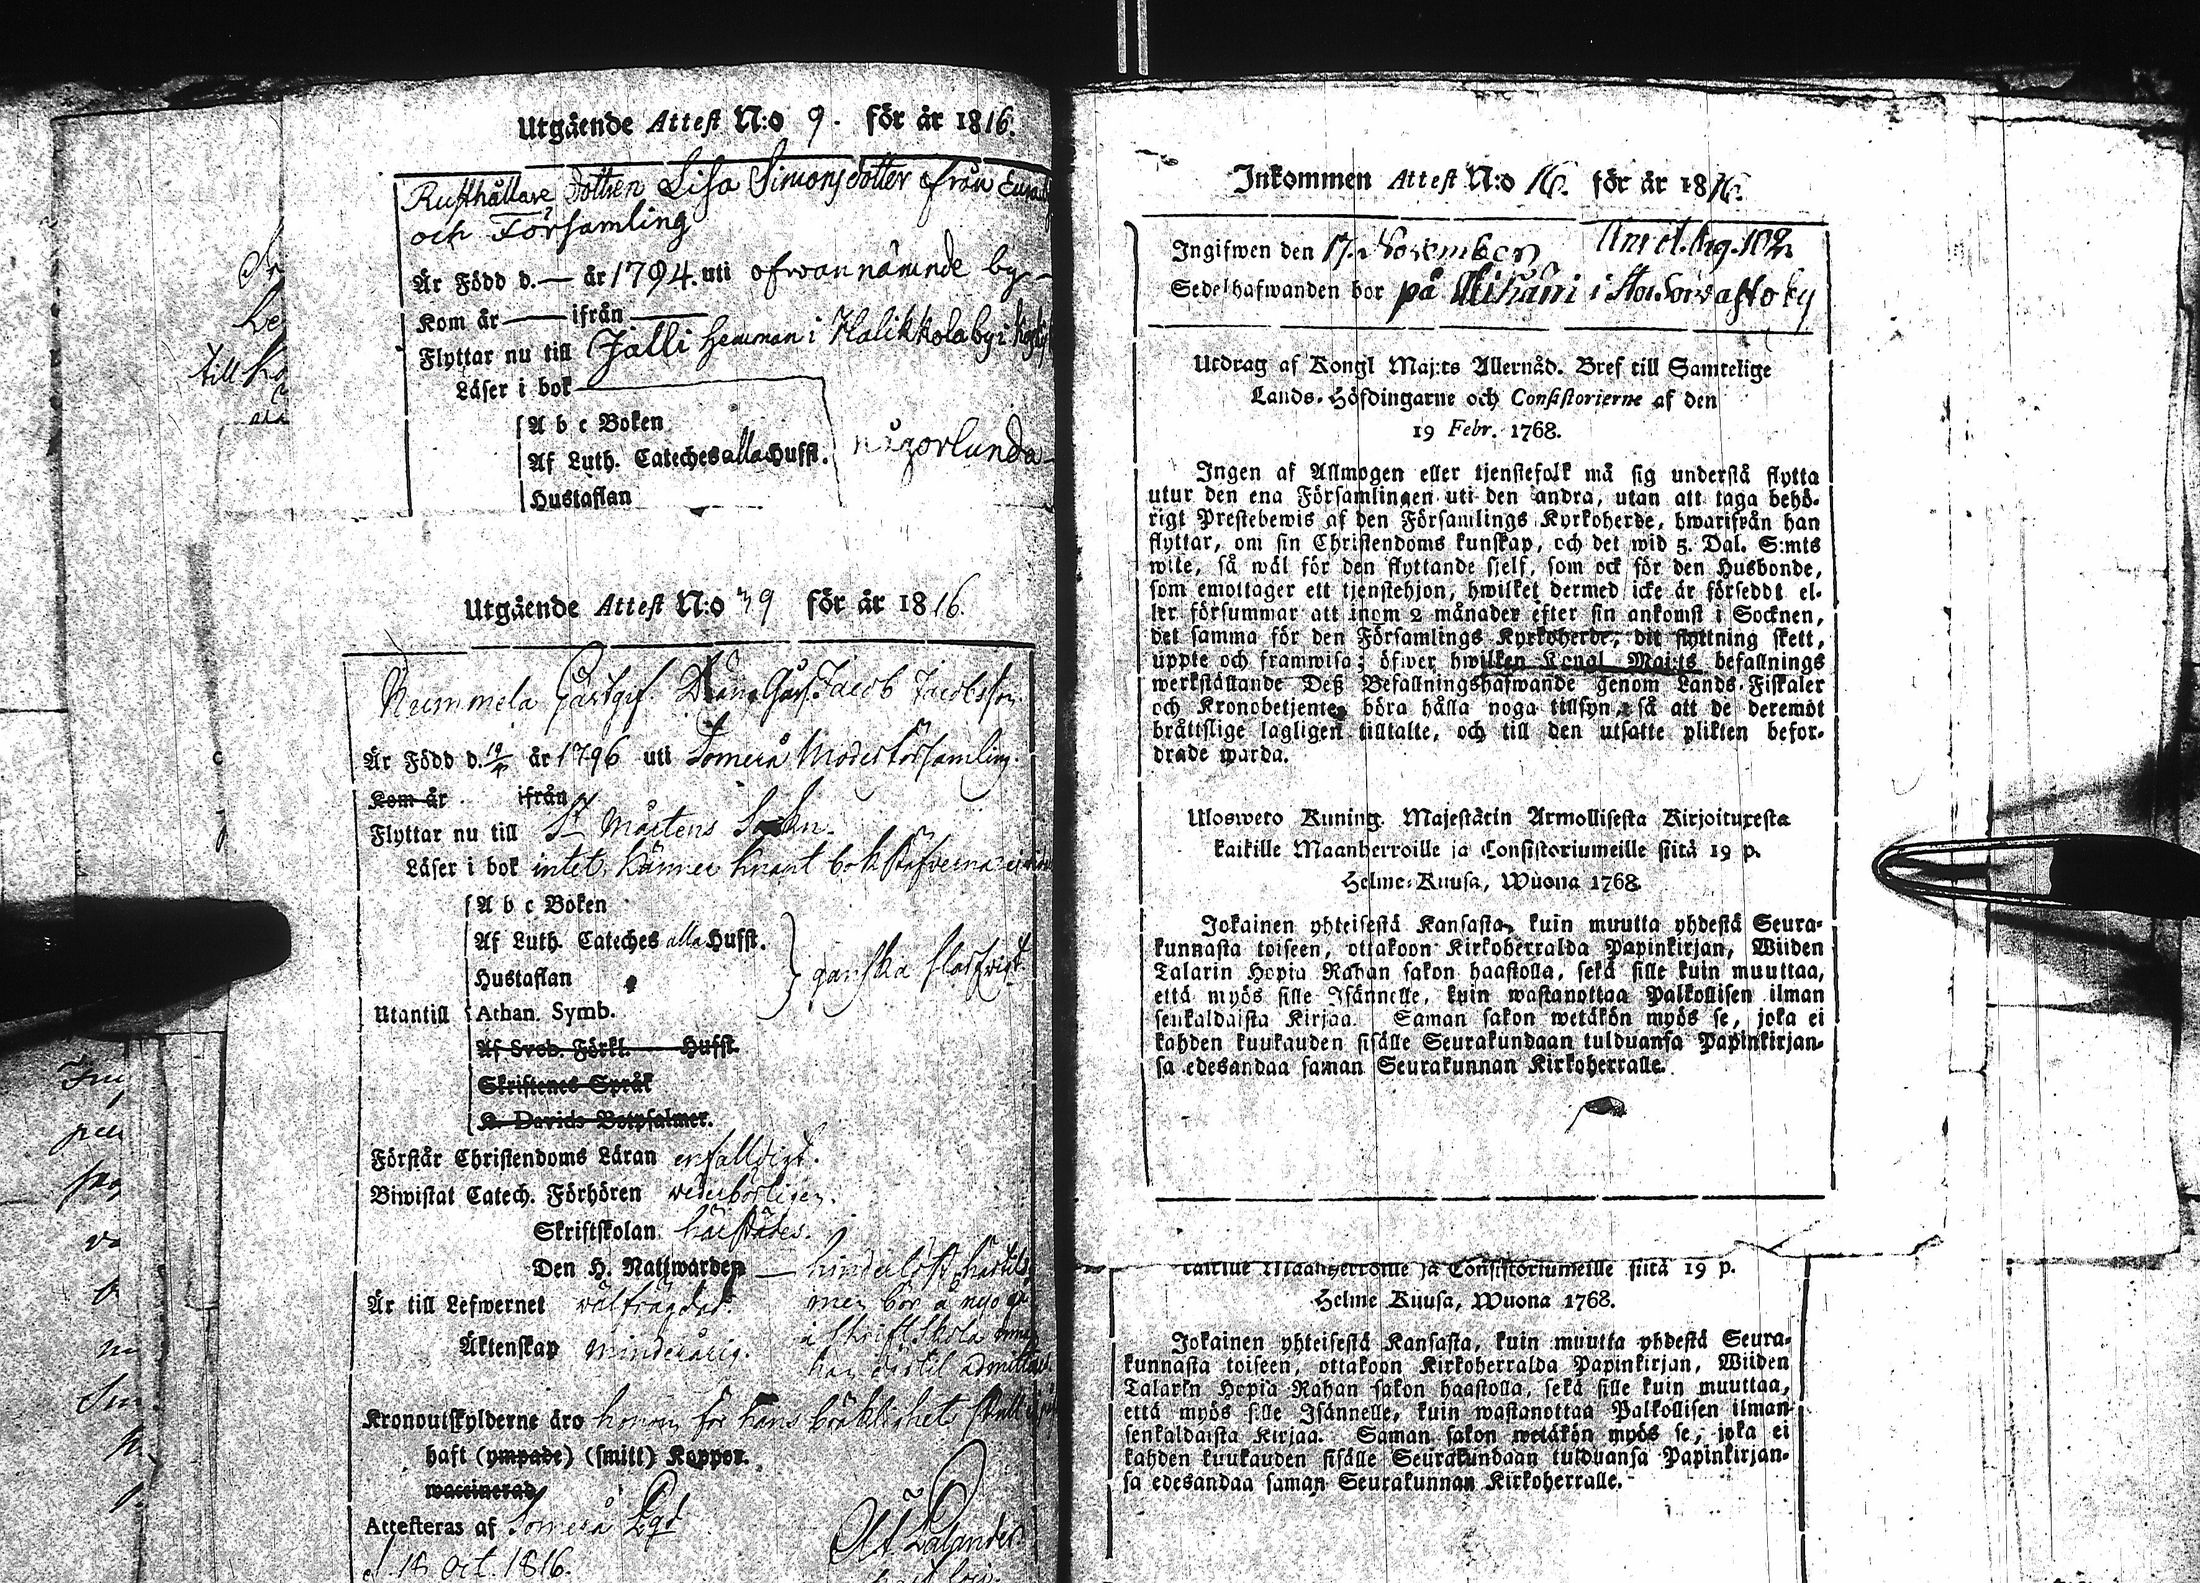 Utgående Attest N:o 9. för år 1816.
Rusthållare Dottren Lisa Simonsdotter från
och Församling
Är Född d. — år 1794. uti ofwannämnde by
Kom år — ifrån —
Flyttar nu till Jalli hemman i Halikkola by i
Läser i bok
A b c Boken
Af Luth. Cateches alla Hufst. någorlunda
Hustaflan
Utgående Attest N:o 39 för år 1816.
Nummela Gästgif. Dräng Jacob Jacobsson
Är Född d. 19/ år 1796 uti Somero Moderförsamling.
Kom år ifrån
Flyttar nu till St Mårtens Sockn.
Läser i bok intet, känner knapt bokstäfverna
A b c Boken
Af Luth. Cateches alla Hufst.
Hustaflan ganska
Utantill Athan. Symb.
Af Sveb. Förkl. Hufst.
Skriftenes Språk
K. Davids Botpsalmer.
Förstår Christendoms Läran enfaldigt.
Biwistat Catech. Förhören wederbörligen.
Skriftskolan härstädes.
Den H. Nattwarden — hinderlöst härtils
Är till Lefwernet wälfrägdad. men bör å nyo
i Skriftskola
Äktenskap minderårig. han dertil admitteras
Kronoutskylderne äro för hans bräcklighet skull
haft (ympade) (smitt) Koppor.
waccinerad
Attesteras af Somero Pgd
d. 18 Oct. 1816.
Inkommen Attest N:o 16. för år 1816.
Ingifwen den 17. November Annot. pag. 102.
Sedelhafwanden bor på i
Utdrag af Kongl Maj:ts Allernåd. Bref till Samtelige
Lands-Höfdingarne och Consistorierne af den
19 Febr. 1768.
Ingen af Allmogen eller tjenstefolk må sig understå flytta
utur den ena Församlingen uti den andra, utan att taga behö-
rigt Prestebewis af den Församlings Kyrkoherde, hwarifrån han
flyttar, om sin Christendoms kunskap, och det wid 5. Dal. S:mts
wite, så wäl för den flyttande sjelf, som ock för den Husbonde,
som emottager ett tjenstehjon, hwilket dermed icke är förseddt el-
ler försummar att inom 2 månader efter sin ankomst i Socknen,
det samma för den Församlings Kyrkoherde, dit flyttning skett,
uppte och framwisa; öfwer hwilken Kongl Maj:ts befallnings
werkställande Deß Befallningshafwande genom Lands-Fiskaler
och Kronobetjente, böra hålla noga tillsyn, så att de deremot
bråttslige lagligen tilltalte, och till den utsatte plikten befor-
drade warda.
Uloswето Kuning. Majestätin Armollisesta Kirjoituxesta
kaikille Maanherroille ja Consistoriumeille siitä 19 p.
Helme-Kuusa, Wuona 1768.
Jokainen yhteisestä Kansasta, kuin muutta yhdestä Seura-
kunnasta toiseen, ottakoon Kirkoherralda Papinkirjan, Wiiden
Talarin Hopia Rahan sakon haastolla, sekä sille kuin muuttaa,
että myös sille Isännelle, kuin wastanottaa Palkollisen ilman
senkaldaista Kirjaa. Saman sakon wetäkön myös se, joka ei
kahden kuukauden sisälle Seurakundaan tulduansa Papinkirjan-
sa edesandaa saman Seurakunnan Kirkoherralle.
kaikille Maanherroille ja Consistoriumeille siitä 19 p.
Helme Kuusa, Wuona 1768.
Jokainen yhteisestä Kansasta, kuin muutta yhdestä Seura-
kunnasta toiseen, ottakoon Kirkoherralda Papinkirjan, Wiiden
Talarin Hopia Rahan sakon haastolla, sekä sille kuin muuttaa,
että myös sille Isännelle, kuin wastanottaa Palkollisen ilman
senkaldaista Kirjaa. Saman sakon wetäkön myös se, joka ei
kahden kuukauden sisälle Seurakundaan tulduansa Papinkirjan-
sa edesandaa saman Seurakunnan Kirkoherralle.